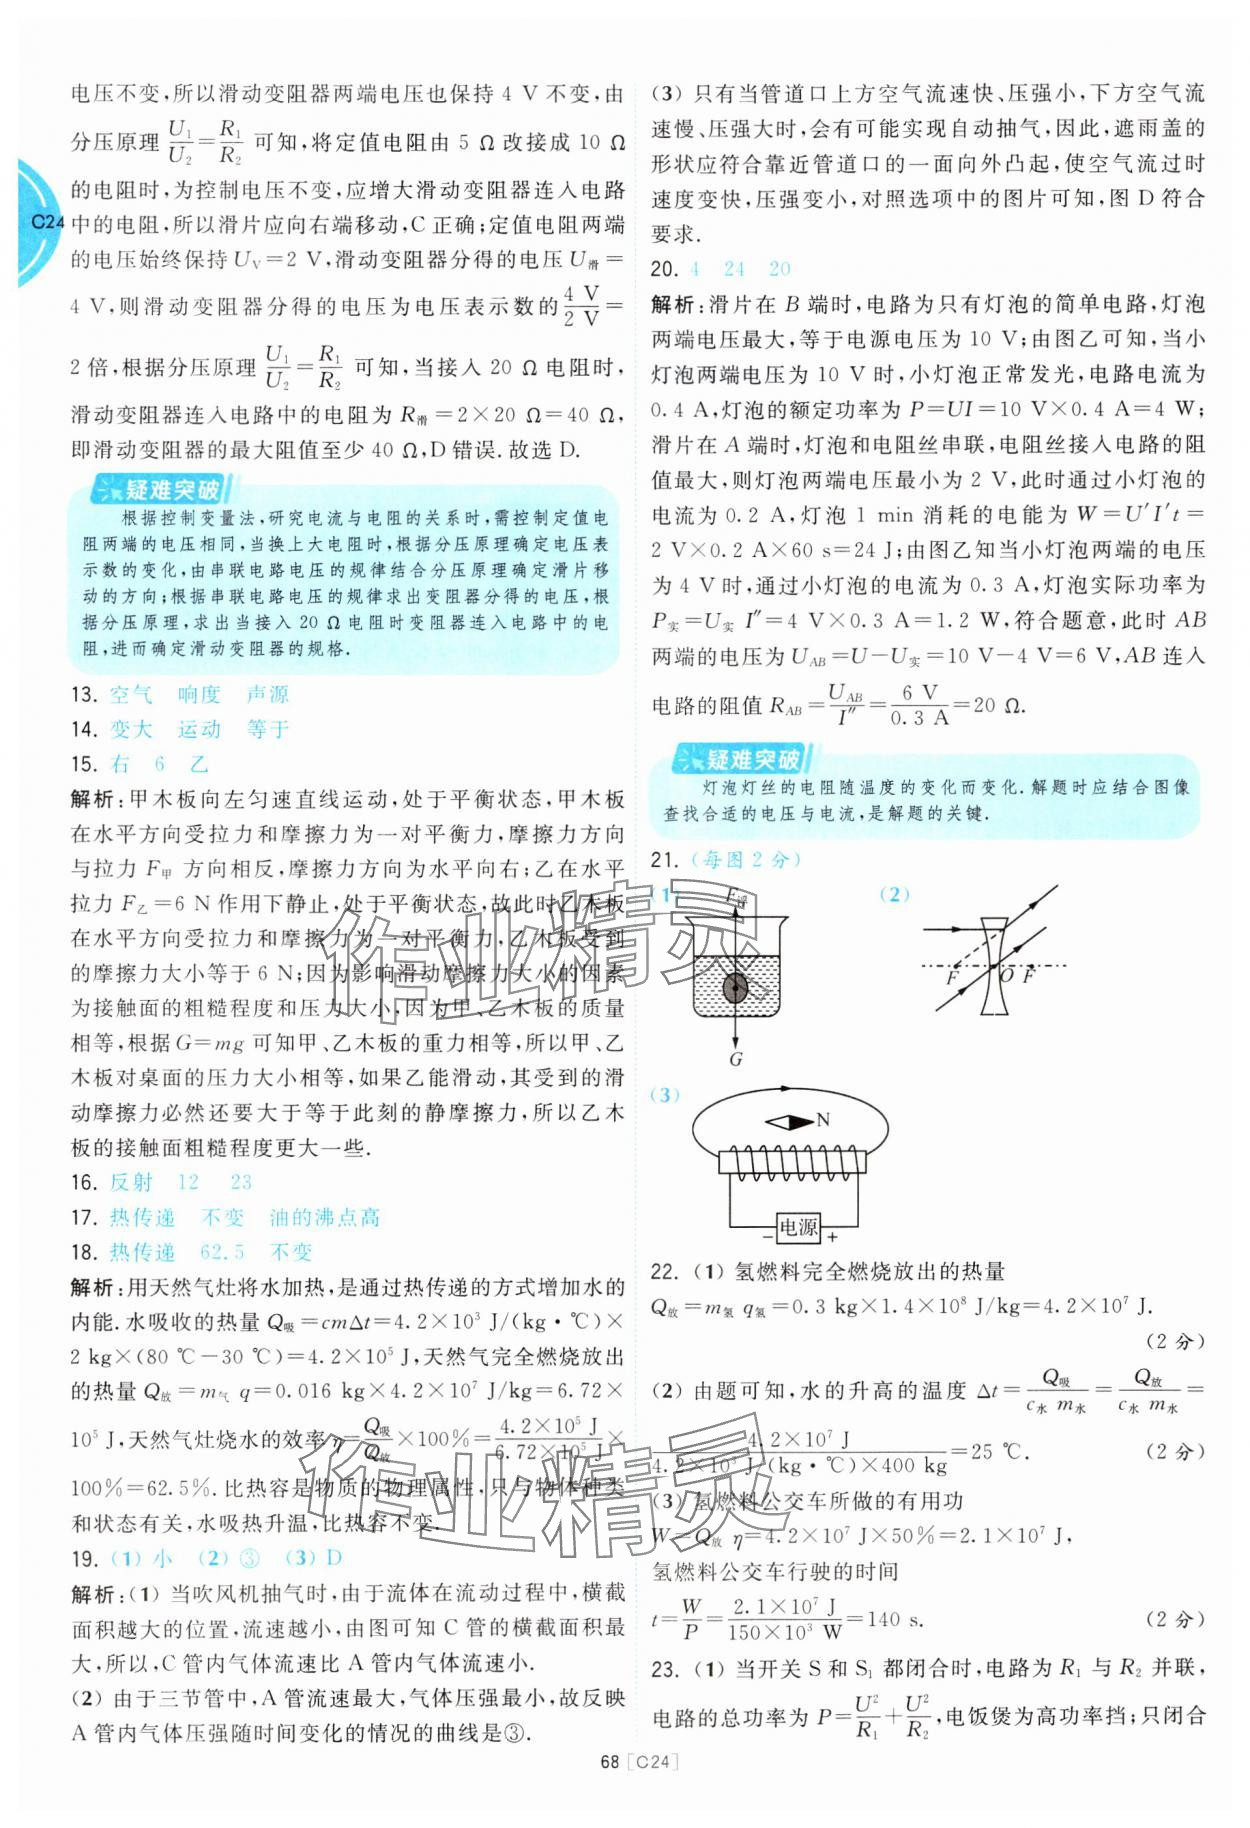 电压不变,所以滑动变阻器两端电压也保持 4 V 不变,由
分压原理 U₁/U₂=R₁/R₂ 可知,将定值电阻由 5 Ω 改接成 10 Ω
的电阻时,为控制电压不变,应增大滑动变阻器连入电路
C24
中的电阻,所以滑片应向右端移动,C 正确;定值电阻两端
的电压始终保持 U_V=2 V,滑动变阻器分得的电压 U滑=
4 V,则滑动变阻器分得的电压为电压表示数的 4 V/2 V=
2 倍,根据分压原理 U₁/U₂=R₁/R₂ 可知,当接入 20 Ω 电阻时,
滑动变阻器连入电路中的电阻为 R滑=2×20 Ω=40 Ω,
即滑动变阻器的最大阻值至少 40 Ω,D 错误.故选 D.
疑难突破
根据控制变量法,研究电流与电阻的关系时,需控制定值电
阻两端的电压相同,当换上大电阻时,根据分压原理确定电压表
示数的变化,由串联电路电压的规律结合分压原理确定滑片移
动的方向;根据串联电路电压的规律求出变阻器分得的电压,根
据分压原理,求出当接入 20 Ω 电阻时变阻器连入电路中的电
阻,进而确定滑动变阻器的规格.
13. 空气 响度 声源
14. 变大 运动 等于
15. 右 6 乙
解析:甲木板向左匀速直线运动,处于平衡状态,甲木板
在水平方向受拉力和摩擦力为一对平衡力,摩擦力方向
与拉力 F甲 方向相反,摩擦力方向为水平向右;乙在水平
拉力 F乙=6 N 作用下静止,处于平衡状态,故此时乙木板
在水平方向受拉力和摩擦力为一对平衡力,乙木板受到
的摩擦力大小等于 6 N;因为影响滑动摩擦力大小的因素
为接触面的粗糙程度和压力大小,因为甲、乙木板的质量
相等,根据 G=mg 可知甲、乙木板的重力相等,所以甲、乙
木板对桌面的压力大小相等,如果乙能滑动,其受到的滑
动摩擦力必然还要大于等于此刻的静摩擦力,所以乙木
板的接触面粗糙程度更大一些.
16. 反射 12 23
17. 热传递 不变 油的沸点高
18. 热传递 62.5 不变
解析:用天然气灶将水加热,是通过热传递的方式增加水的
内能.水吸收的热量 Q吸=cmΔt=4.2×10³ J/(kg·℃)×
2 kg×(80 ℃-30 ℃)=4.2×10⁵ J,天然气完全燃烧放出
的热量 Q放=m气 q=0.016 kg×4.2×10⁷ J/kg=6.72×
10⁵ J,天然气灶烧水的效率 η=Q吸/Q放×100%=4.2×10⁵ J/6.72×10⁵ J×
100%=62.5%.比热容是物质的物理属性,只与物体种类
和状态有关,水吸热升温,比热容不变.
19. (1) 小 (2) ③ (3) D
解析:(1) 当吹风机抽气时,由于流体在流动过程中,横截
面积越大的位置,流速越小,由图可知 C 管的横截面积最
大,所以,C 管内气体流速比 A 管内气体流速小.
(2) 由于三节管中,A 管流速最大,气体压强最小,故反映
A 管内气体压强随时间变化的情况的曲线是③.
(3) 只有当管道口上方空气流速快、压强小,下方空气流
速慢、压强大时,会有可能实现自动抽气,因此,遮雨盖的
形状应符合靠近管道口的一面向外凸起,使空气流过时
速度变快,压强变小,对照选项中的图片可知,图 D 符合
要求.
20. 4 24 20
解析:滑片在 B 端时,电路为只有灯泡的简单电路,灯泡
两端电压最大,等于电源电压为 10 V;由图乙可知,当小
灯泡两端电压为 10 V 时,小灯泡正常发光,电路电流为
0.4 A,灯泡的额定功率为 P=UI=10 V×0.4 A=4 W;
滑片在 A 端时,灯泡和电阻丝串联,电阻丝接入电路的阻
值最大,则灯泡两端电压最小为 2 V,此时通过小灯泡的
电流为 0.2 A,灯泡 1 min 消耗的电能为 W=U′I′t=
2 V×0.2 A×60 s=24 J;由图乙知当小灯泡两端的电压
为 4 V 时,通过小灯泡的电流为 0.3 A,灯泡实际功率为
P实=U实 I″=4 V×0.3 A=1.2 W,符合题意,此时 AB
两端的电压为 U_AB=U-U实=10 V-4 V=6 V,AB 连入
电路的阻值 R_AB=U_AB/I″=6 V/0.3 A=20 Ω.
疑难突破
灯泡灯丝的电阻随温度的变化而变化.解题时应结合图像
查找合适的电压与电流,是解题的关键.
21. (每图 2 分)
(1) F浮 G
(2) F O F
(3) N
电源
- +
22. (1) 氢燃料完全燃烧放出的热量
Q放=m氢 q氢=0.3 kg×1.4×10⁸ J/kg=4.2×10⁷ J.
(2 分)
(2) 由题可知,水的升高的温度 Δt=Q吸/c水 m水=Q放/c水 m水=
4.2×10⁷ J/4.2×10³ J/(kg·℃)×400 kg=25 ℃. (2 分)
(3) 氢燃料公交车所做的有用功
W=Q放 η=4.2×10⁷ J×50%=2.1×10⁷ J,
氢燃料公交车行驶的时间
t=W/P=2.1×10⁷ J/150×10³ W=140 s. (2 分)
23. (1) 当开关 S 和 S₁ 都闭合时,电路为 R₁ 与 R₂ 并联,
电路的总功率为 P=U²/R₁+U²/R₂,电饭煲为高功率挡;只闭合
68[C24]
作业精灵
作业精灵